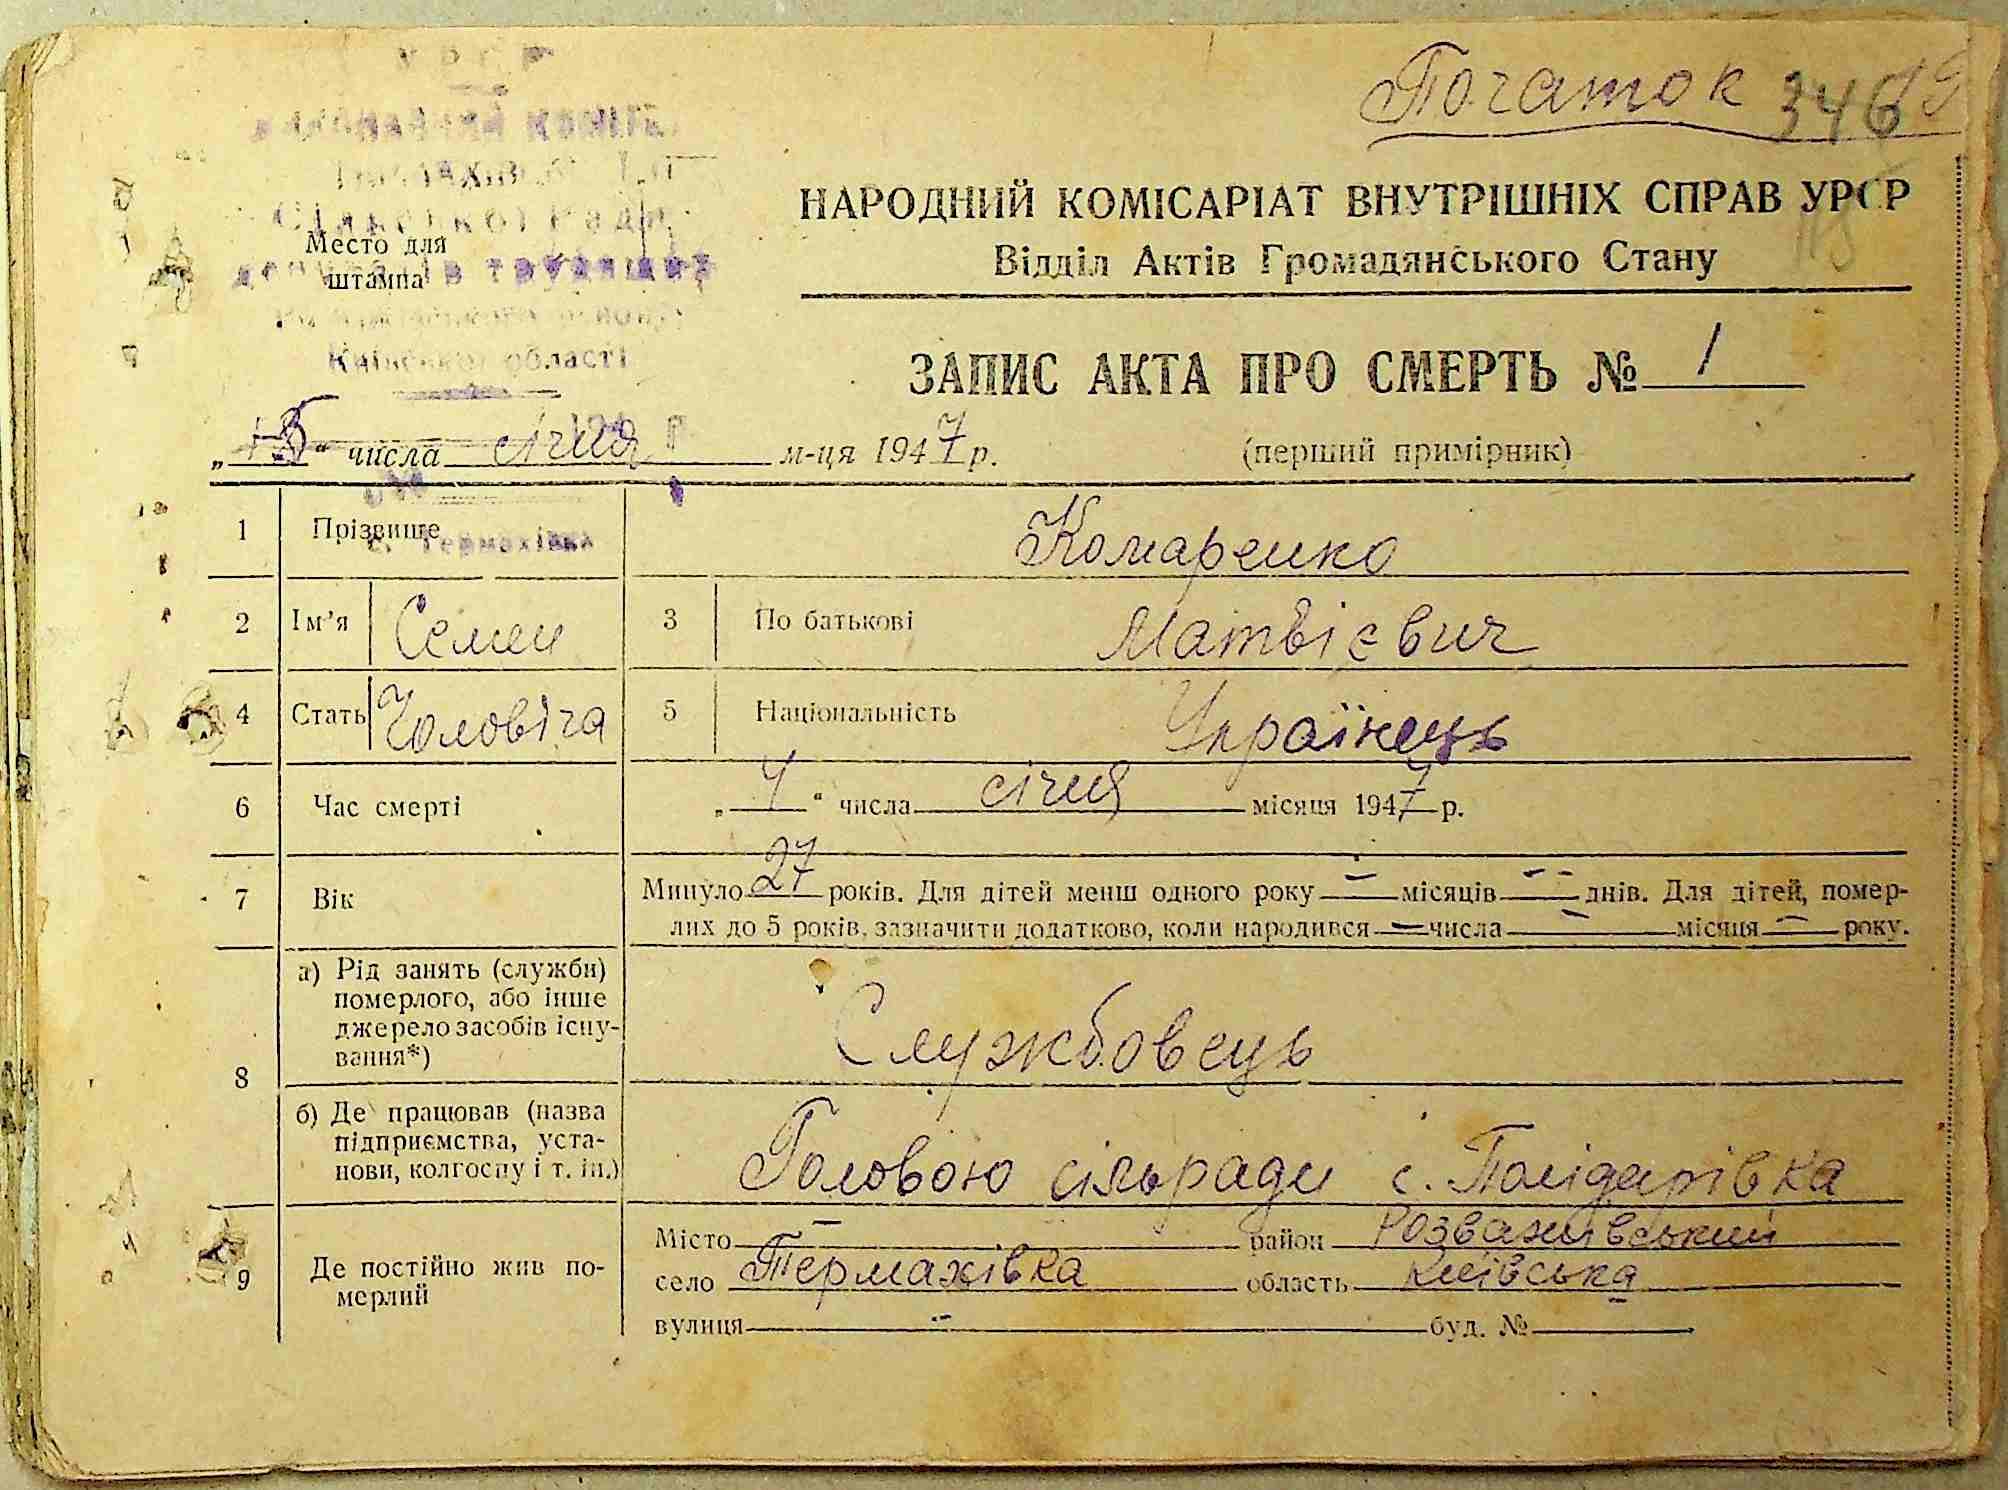 Початок 346
УРСР
Сільської Ради
депутатів трудящих
Київської області
Место для
штампа
с. Термахівка
НАРОДНИЙ КОМІСАРІАТ ВНУТРІШНІХ СПРАВ УРСР
Відділ Актів Громадянського Стану
ЗАПИС АКТА ПРО СМЕРТЬ № 1
„ “ числа січня м-ця 1947 р. (перший примірник)
1 Прізвище Комаренко
2 Ім'я Семен 3 По батькові Матвієвич
4 Стать Чоловіча 5 Національність Українець
6 Час смерті „4“ числа січня місяця 1947 р.
7 Вік Минуло 27 років. Для дітей менш одного року — місяців — днів. Для дітей, помер-
лих до 5 років, зазначити додатково, коли народився — числа — місяця — року.
8 а) Рід занять (служби)
померлого, або інше
джерело засобів існу-
вання*) Службовець
б) Де працював (назва
підприємства, уста-
нови, колгоспу і т. ін.) Головою сільради с.
9 Де постійно жив по-
мерлий
Місто — район Розважівський
село Термахівка область Київська
вулиця — буд. №